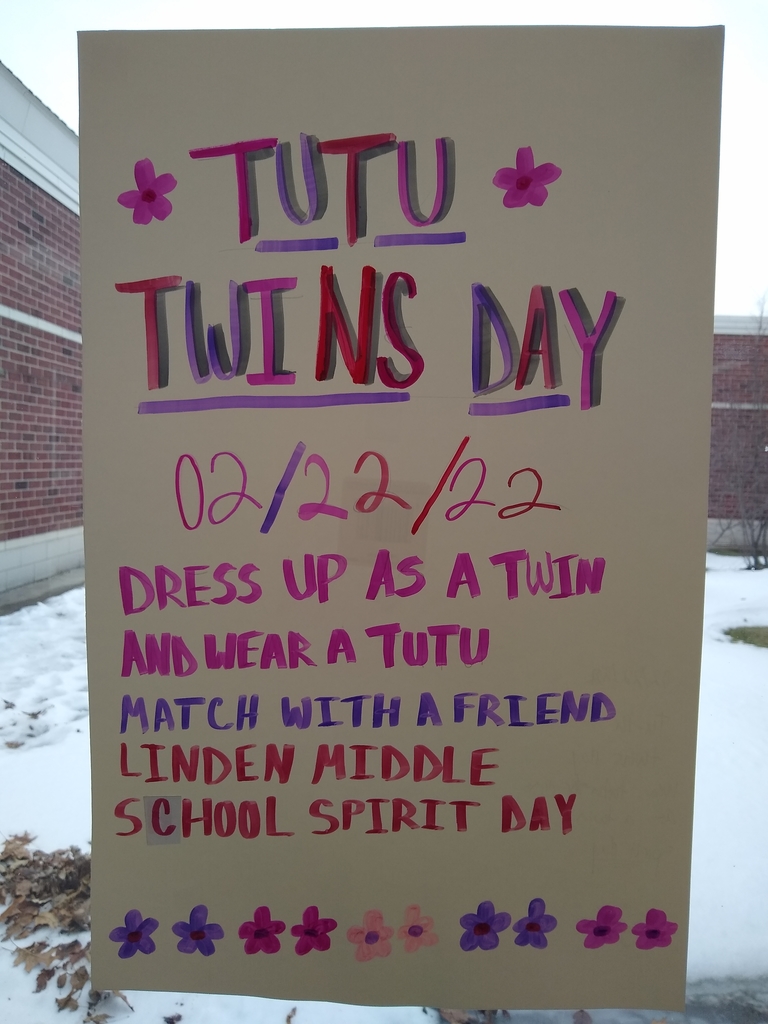 TUTU
TWINS DAY
02/22/22
DRESS UP AS A TWIN
AND WEAR A TUTU
MATCH WITH A FRIEND
LINDEN MIDDLE
SCHOOL SPIRIT DAY